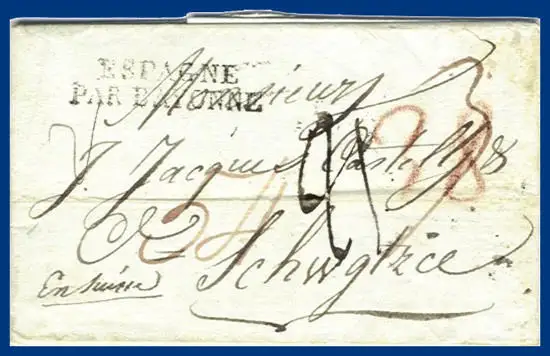 ESPAGNE
PAR BAYONNE
Monsieur
J. Jacques Castell
54 28
à Schwytz
En Suisse